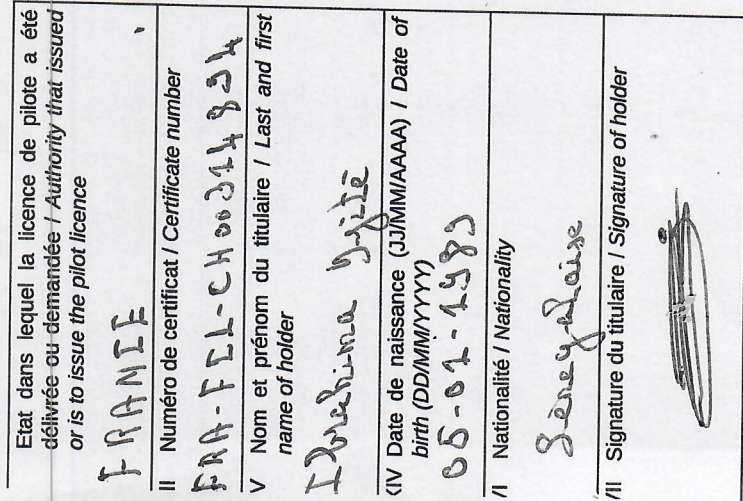 Etat dans lequel la licence de pilote a été
délivrée ou demandée / Authority that issued
or is to issue the pilot licence
FRANCE
II Numéro de certificat / Certificate number
FRA-FCL-CH00314894
V Nom et prénom du titulaire / Last and first
name of holder
Ibrahima
XIV Date de naissance (JJ/MM/AAAA) / Date of
birth (DD/MM/YYYY)
05-01-1989
VI Nationalité / Nationality
Senegalaise
VII Signature du titulaire / Signature of holder